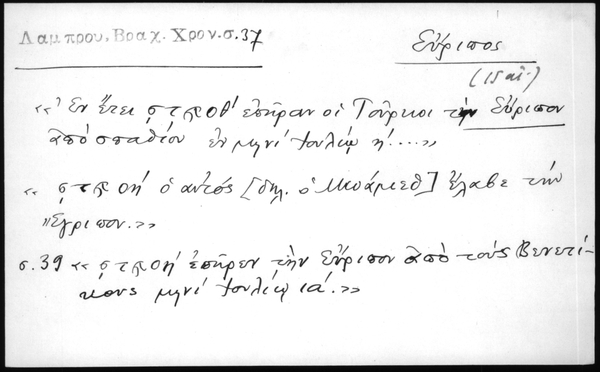 Λαμπρου, Βραχ. Χρον. σ. 37
Εὔριπος
(15 αἰ.)
«Ἐν ἔτει ϛϡοθ' ἐπῆραν οἱ Τοῦρκοι τὴν Εὔριπον
ἀπὸ σπαθίου ἐν μηνὶ Ἰουλίῳ η'....»
« ϛϡοη' ὁ αὐτός [δηλ. ὁ Μωάμεθ] ἔλαβε τὴν
Ἔγριπον.»
σ. 39 « ϛϡοη' ἐπῆρεν τὴν Εὔριπον ἀπὸ τοὺς Βενετί-
κους μηνὶ Ἰουλίῳ ια'.»